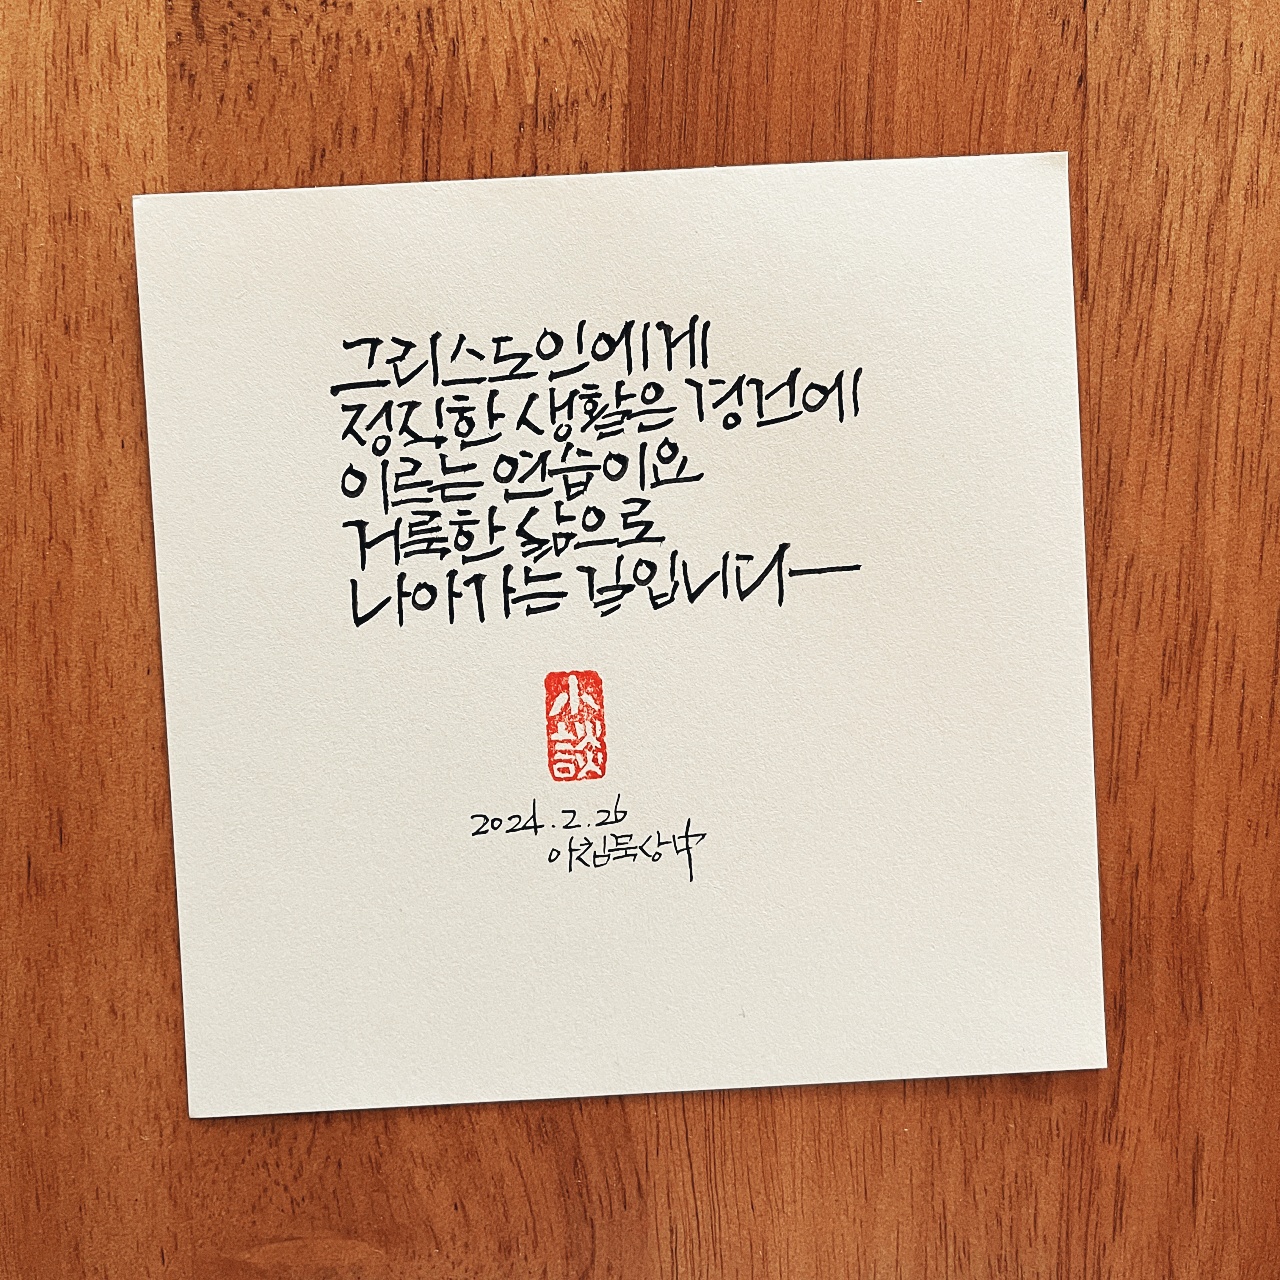 그리스도인에게
정직한 생활은 경건에
이르는 연습이요
거룩한 삶으로
나아가는 길입니다
小
談
2024.2.26
아침묵상中